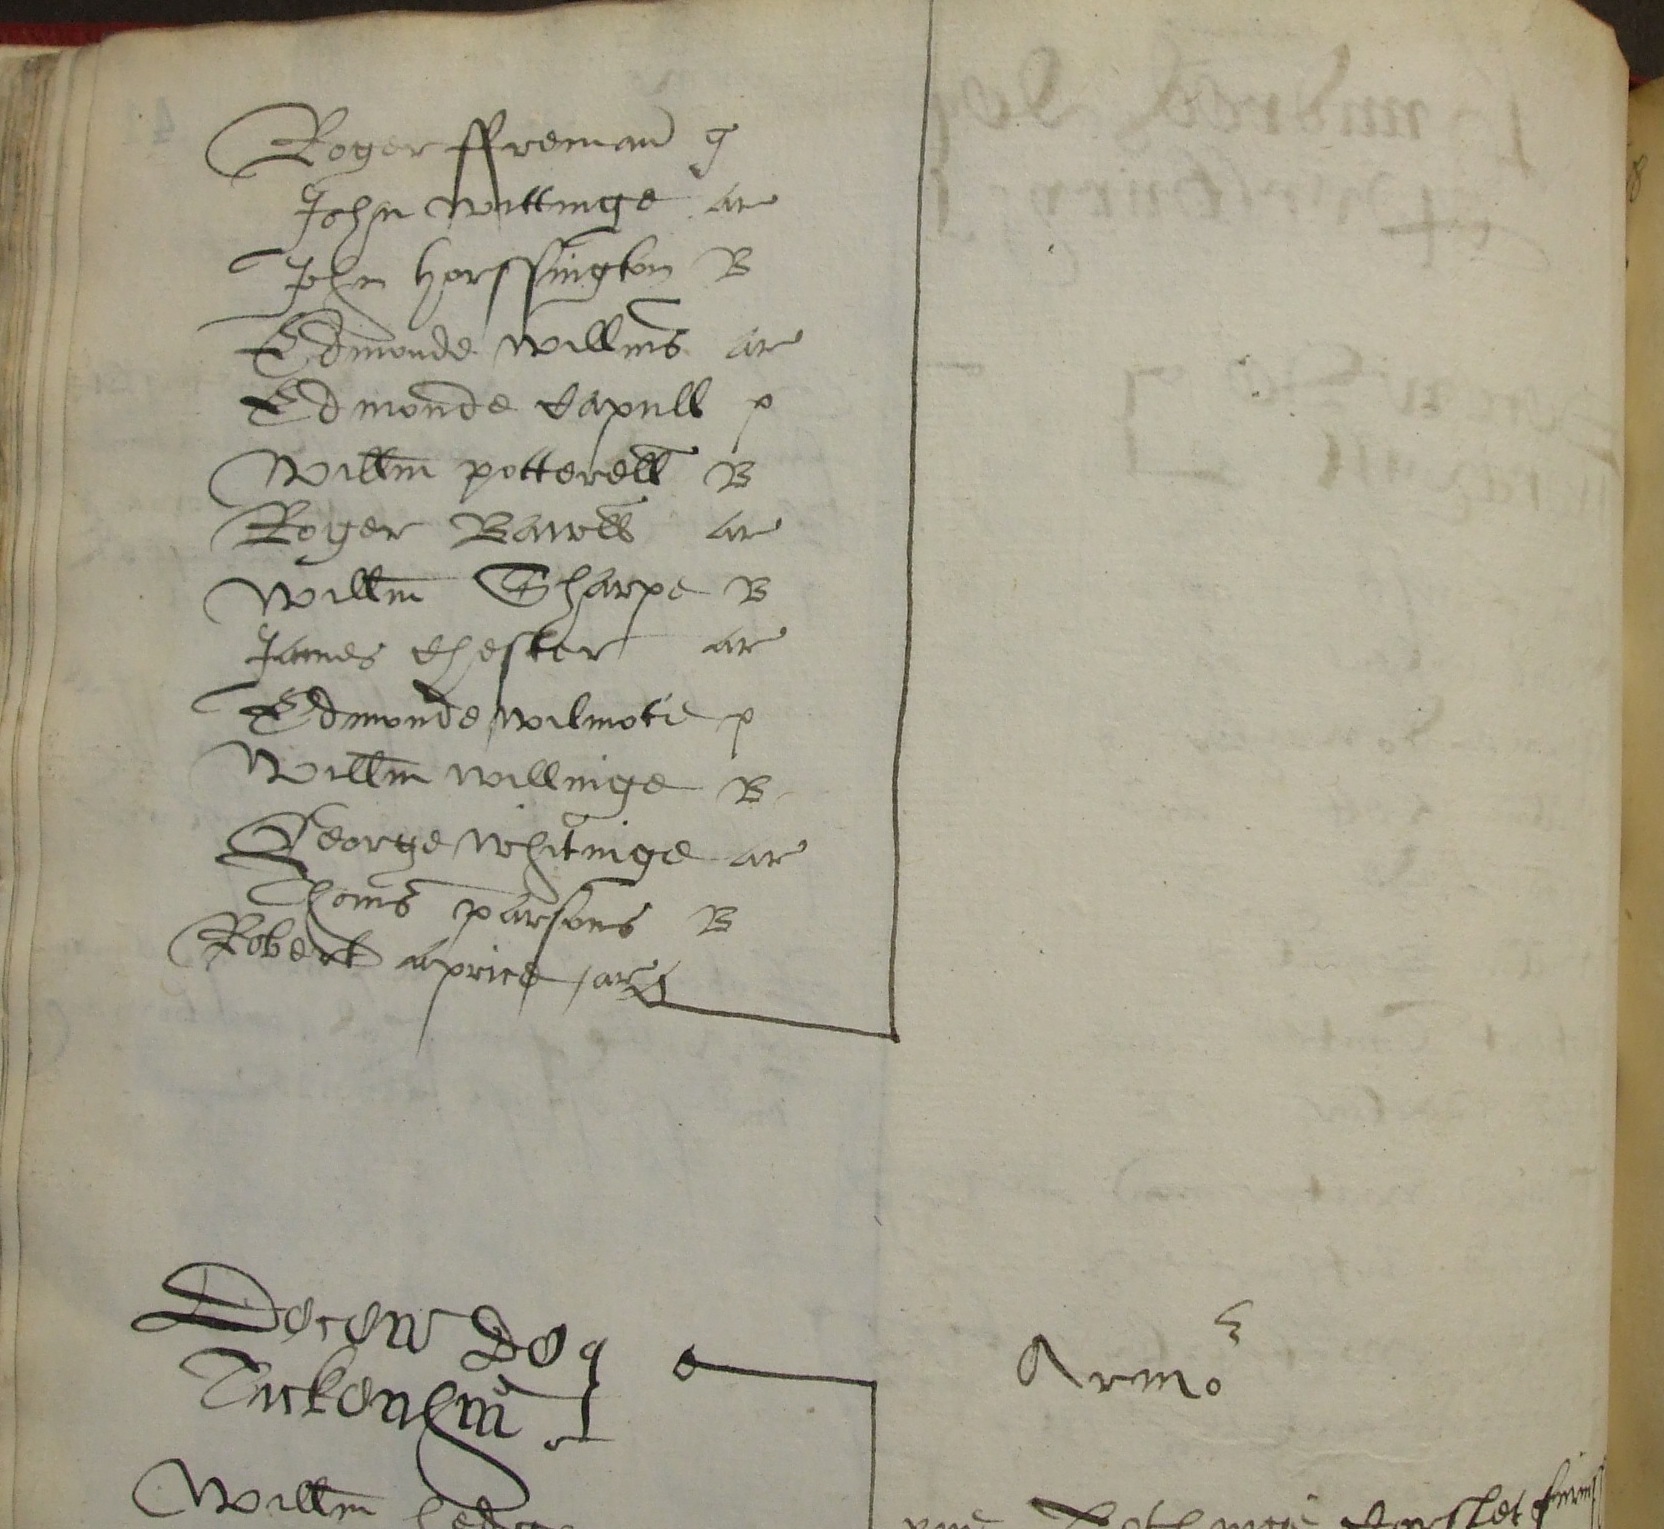 Roger ffreman g
John Wittinge ar
John horssington B
Edmonde Willms ar
Edmonde Capull p
Willm potterell B
Roger Bawll ar
Willm Sharpe B
James Chester ar
Edmonde Wilmote p
Willm Willinge B
George Whitinge ar
Thoms parsons B
Robert aprice ar
Decen de
Tickenhm
Armo
Willm
Corslet